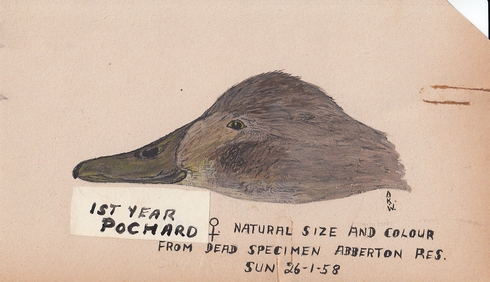 A
K.
W.
1ST YEAR
POCHARD ♀ NATURAL SIZE AND COLOUR
FROM DEAD SPECIMEN ABBERTON RES.
SUN 26-1-58